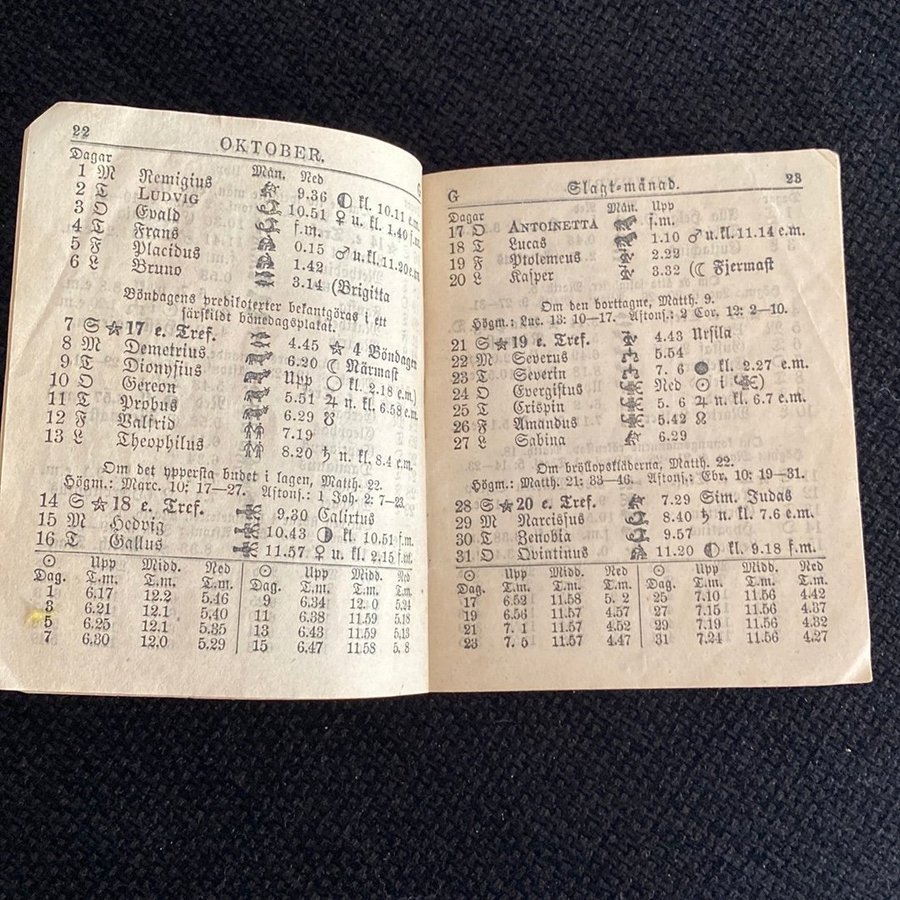 22
OKTOBER.
Dagar Mån. Ned
1 M Remigius 9.36 ◐ kl. 10.11 e.m.
2 T LUDVIG 10.51 ♀ u. kl. 1.40 f.m.
3 O Evald f.m.
4 T Frans 0.15 ♂ u. kl. 11.20 e.m.
5 F Placidus 1.42
6 L Bruno 3.14 (Brigitta
Böndagens predikotexter bekantgöras i ett
särskildt bönedagsplakat.
7 S ☆ 17 e. Tref. 4.45 ☆ 4 Böndagen
8 M Demetrius 6.20 ☾ Närmast
9 T Dionysius Upp ○ kl. 2.18 e.m.)
10 O Gereon 5.51 ♃ n. kl. 6.58 e.m.
11 T Probus 6.29 ☋
12 F Valfrid 7.19
13 L Theophilus 8.20 ♄ n. kl. 8.4 e.m.
Om det yppersta budet i lagen, Matth. 22.
Högm.: Marc. 10: 17—27. Aftons.: 1 Joh. 2: 7—23.
14 S ☆ 18 e. Tref. 9.30 Calixtus
15 M Hedvig 10.43 ◑ kl. 10.51 f.m.
16 T Gallus 11.57 ♀ u. kl. 2.15 f.m.
☉ Upp Midd. Ned ☉ Upp Midd. Ned
Dag. T.m. T.m. T.m. Dag. T.m. T.m. T.m.
1 6.17 12.2 5.46 9 6.34 12.0 5.24
3 6.21 12.1 5.40 11 6.38 11.59 5.18
5 6.25 12.1 5.35 13 6.43 11.59 5.13
7 6.30 12.0 5.29 15 6.47 11.58 5.8
G Slagt-månad. 23
Dagar Mån. Upp
17 O ANTOINETTA f.m.
18 T Lucas 1.10 ♂ u. kl. 11.14 e.m.
19 F Ptolemeus 2.22
20 L Kasper 3.32 (☾ Fjermast
Om den borttagne, Matth. 9.
Högm.: Luc. 13: 10—17. Aftons.: 2 Cor. 12: 2—10.
21 S ☆ 19 e. Tref. 4.43 Ursila
22 M Severus 5.54
23 T Severin 7. 6 ● kl. 2.27 e.m.
24 O Evergistus Ned ☉ i ♏)
25 T Crispin 5. 6 ♃ n. kl. 6.7 e.m.
26 F Amandus 5.42 ☊
27 L Sabina 6.29
Om bröllopskläderna, Matth. 22.
Högm.: Matth. 21: 33—46. Aftons.: Ebr. 10: 19—31.
28 S ☆ 20 e. Tref. 7.29 Sim. Judas
29 M Narcissus 8.40 ♄ n. kl. 7.6 e.m.
30 T Zenobia 9.57
31 O Qvintinus 11.20 ◐ kl. 9.18 f.m.
☉ Upp Midd. Ned ☉ Upp Midd. Ned
Dag. T.m. T.m. T.m. Dag. T.m. T.m. T.m.
17 6.52 11.58 5. 2 25 7.10 11.56 4.42
19 6.56 11.57 4.57 27 7.15 11.56 4.37
21 7. 1 11.57 4.52 29 7.19 11.56 4.32
23 7. 5 11.57 4.47 31 7.24 11.56 4.27